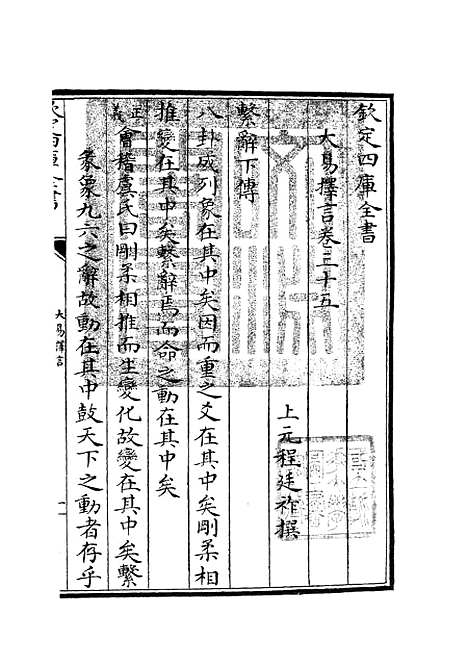 欽定四庫全書
大易擇言卷三十五
上元程廷祚撰
繫辭下傳
八卦成列象在其中矣因而重之爻在其中矣剛柔相
推變在其中矣繫辭焉而命之動在其中矣
正義會稽虞氏曰剛柔相推而生變化故變在其中矣繫
彖象九六之辭故動在其中鼓天下之動者存乎
大易擇言
一